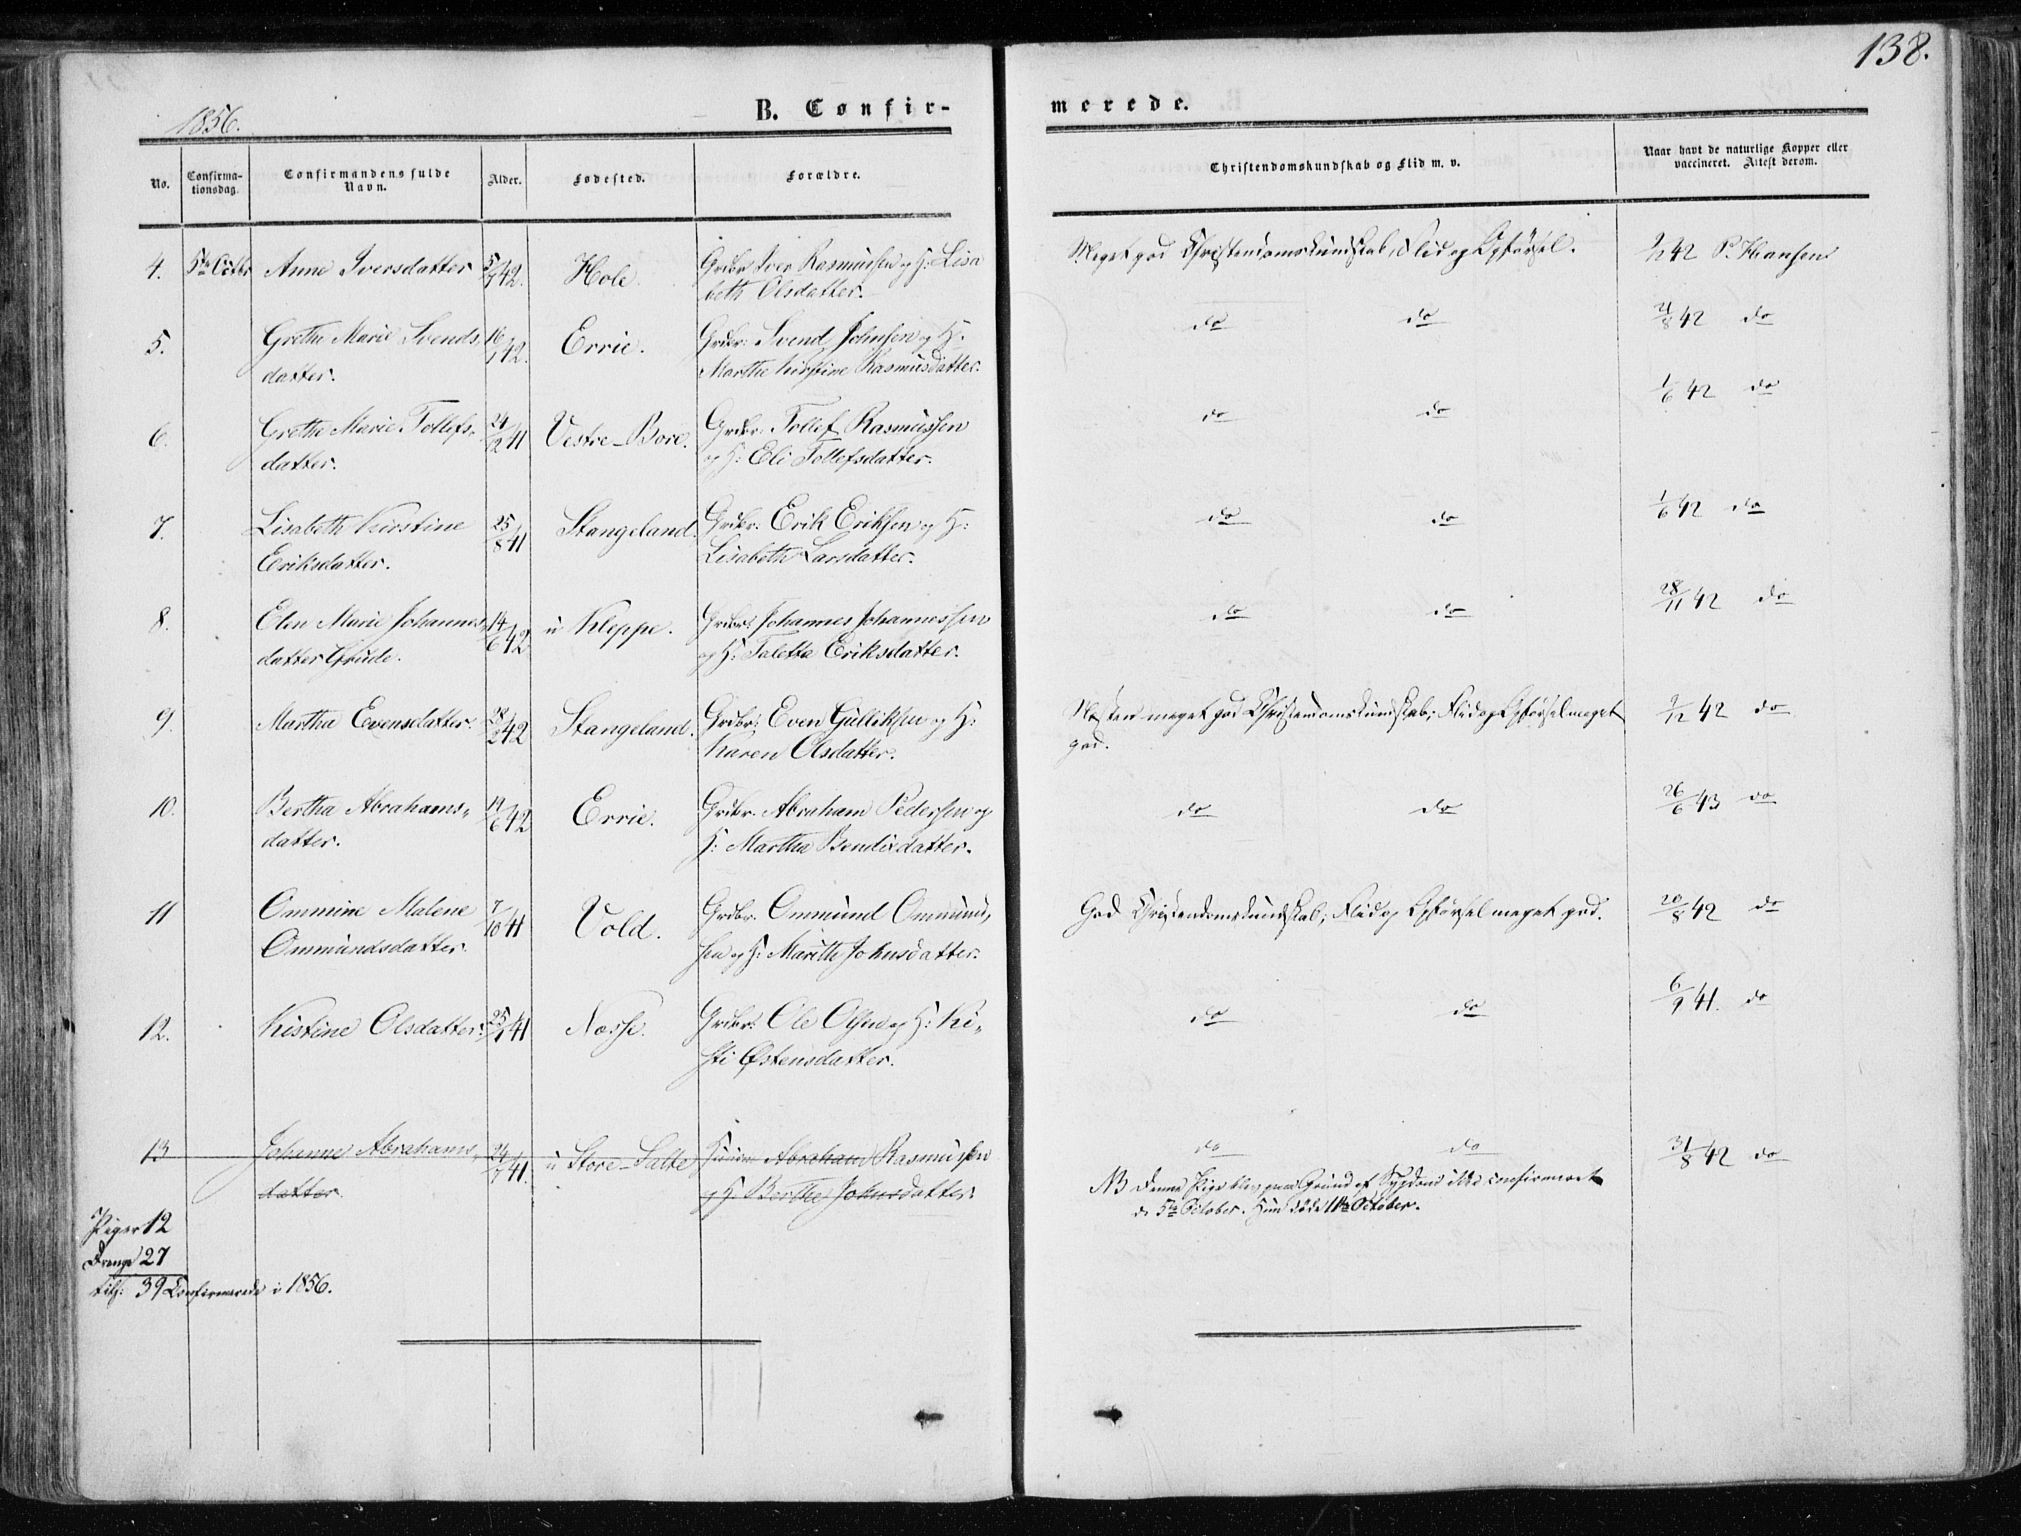 138.
1856.
B. Confir-
merede.
No.
Confirma-
tionsdag.
Confirmandens fulde
Navn.
Alder.
Fødested.
Forældre.
Christendomskundskab og Flid m. v.
Naar havt de naturlige Kopper eller
vaccineret. Attest derom.
4. 5te Octbr Anne Iversdatter 42. Hole. Grdbr Iver Rasmussen og H: Lisa
beth Olsdatter.
Meget god Christendomskundskab, Flid og Opførsel. 42 P. Hansen
5. Grethe Marie Svends 16/1 42. Errie. Grdbr: Svend Johnsen og H:
datter. Martha Kirstine Rasmusdatter.
do do 21/8 42 do
6. Grethe Marie Tollefs- 24/12 41 Vestre-Bore. Grdbr. Tollef Rasmussen
datter. og H: Eli Tollefsdatter.
do do 1/6 42 do
7. Lisabeth Kirstine 25/8 41 Stangeland. Grdbr: Erik Eriksen og H:
Eriksdatter. Lisabeth Larsdatter.
do do 1/6 42 do
8. Elen Marie Johannes- 14/6 42 u Kleppe. Grdbr: Johannes Johannessen
datter Grude. og H: Talette Eriksdatter.
do do 28/11 42 do
9. Martha Evensdatter. 28/2 42 Stangeland. Grdbr: Even Gulliksen og H:
Karen Olsdatter.
Næsten meget god Christendomskundskab; Flid og Opførsel meget 9/12 42 do
god.
10. Bertha Abrahams- 14/6 42 Errie. Grdbr. Abraham Pedersen og
datter. H: Martha Bendixdatter.
do do 26/6 43 do
11 Ommine Malene 7/10 41 Vold. Grdbr. Ommund Ommund-
Ommundsdatter. sen og H: Marithe Johnsdatter.
God Christendomskundskab; Flid og Opførsel meget god. 20/8 42 do
12. Kistine Olsdatter. 41 Næsse. Grdbr: Ole Olsen og H: Ki-
sti Østensdatter.
do do 6/9 41. do
13 Johanne Abrahams- 41. u Store-Salte Abraham Rasmussen
datter. og H: Berthe Johnsdatter.
do do 31/8 42 do
NB Denne Pige blev paa Grund af Sygdom ikke confirmeret
d: 5te October. Hun døde 11te October.
Piger 12
Drenge 27
tils: 39 Confirmerede i 1856.